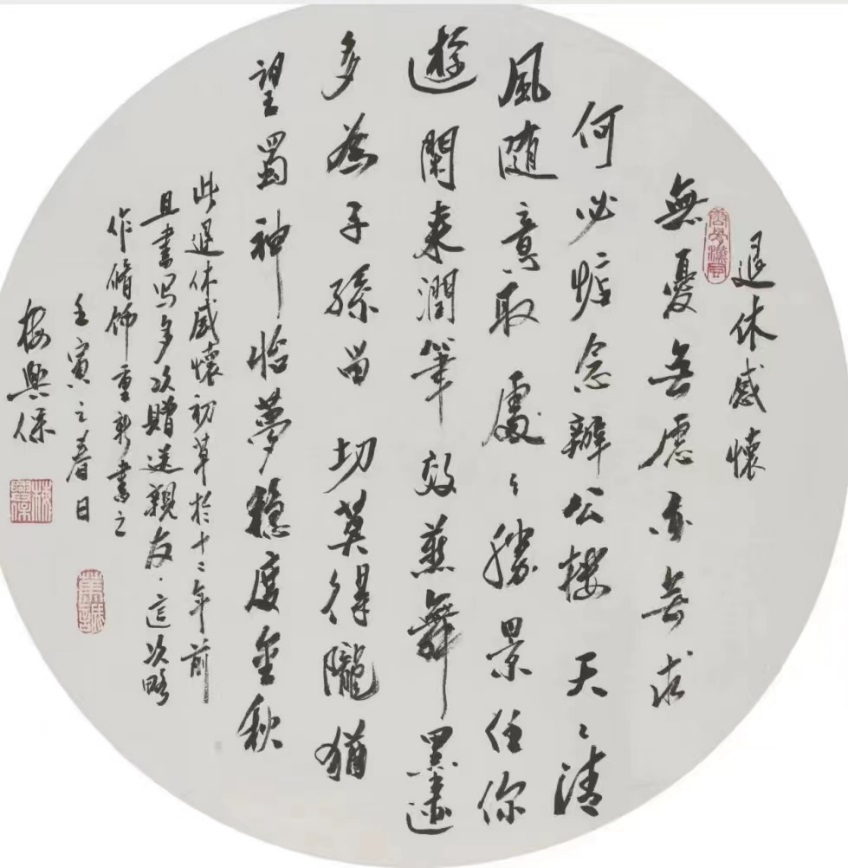 退休感懷
無憂無慮亦無求
何必惦念辦公樓天〻清
風随意取處〻勝景任你
遊閑来潤筆效燕舞墨迹
多為子孫留切莫得隴猶
望蜀神怡夢穩度金秋
此退休感懷初草於十二年前
且書写多次贈送親友這次略
作脩飾重新書之
壬寅之春日
梅興保